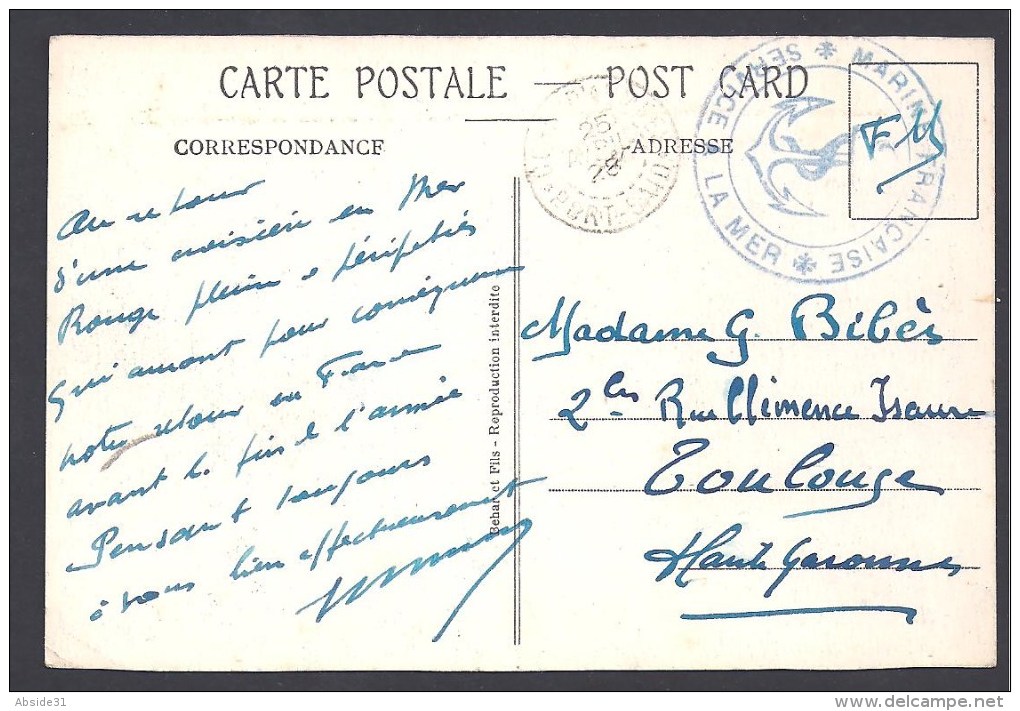 CARTE POSTALE — POST CARD
CORRESPONDANCE
ADRESSE
MARINE FRANÇAISE
SERVICE À LA MER
25
28
PORT-SAID
FM
Au retour
d'une croisière en Mer
Rouge pleine de péripéties
Qui auront pour conséquence
notre retour en France
avant la fin de l'année
Pensant toujours
à vous bien affectueusement
Behar et Fils - Reproduction interdite
Madame G. Bibès
2 bis Rue Clémence Isaure
Toulouse
Haute Garonne
Abside31
www.delcampe.net